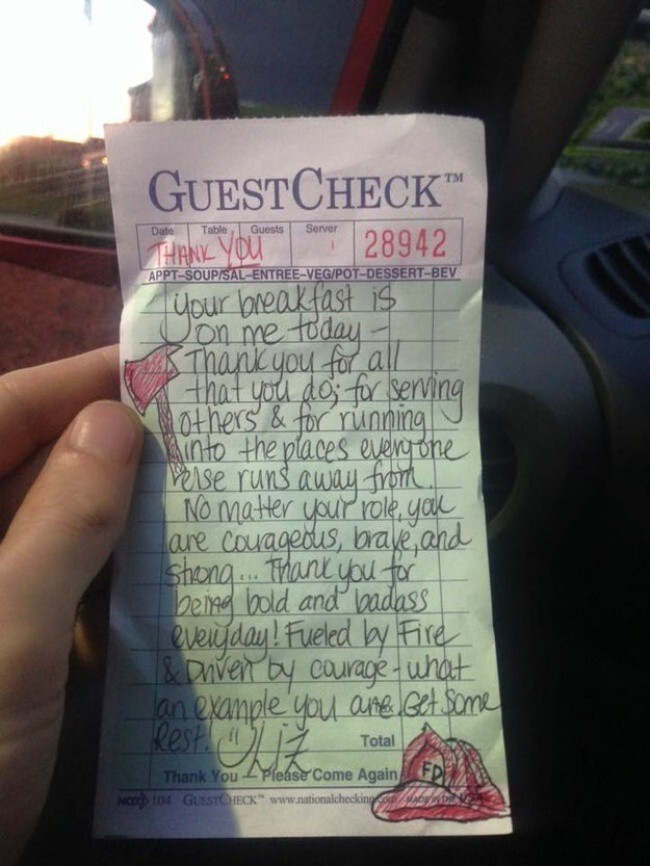 GUESTCHECK™
Date Table Guests Server
THANK YOU 28942
APPT–SOUP/SAL–ENTREE–VEG/POT–DESSERT–BEV
your breakfast is
on me today -
Thank you for all
that you do; for serving
others & for running
into the places everyone
else runs away from.
No matter your role, you
are courageous, brave, and
strong... Thank you for
being bold and badass
everyday! Fueled by Fire
& Driven by courage - what
an example you are. Get Some
Rest. Liz
Total
FD
Thank You Please Come Again
104 GUESTCHECK™ www.nationalchecking MADE IN THE USA